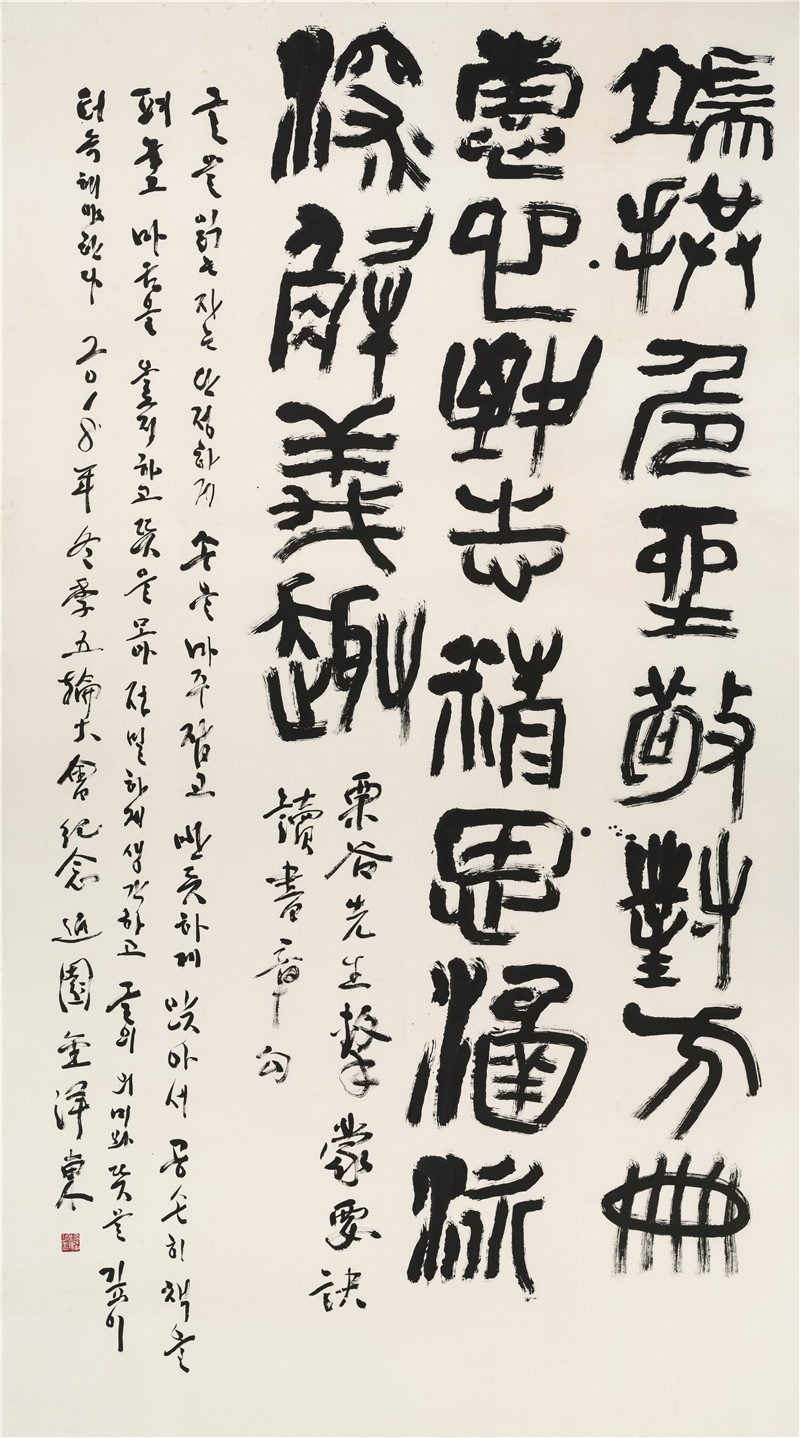 端拱危坐敬對方冊
專心致志精思涵泳
深解義趣
栗谷先生擊蒙要訣
讀書章句
글을 읽는 자는 단정하게 손을 마주잡고 반듯하게 앉아서 공손히 책을
펴놓고 마음을 오로지하고 뜻을 모아 정밀하게 생각하고 글의 의미와 뜻을 깊이
터득해야한다 2018年 冬季五輪大會紀念 近園 金洋東